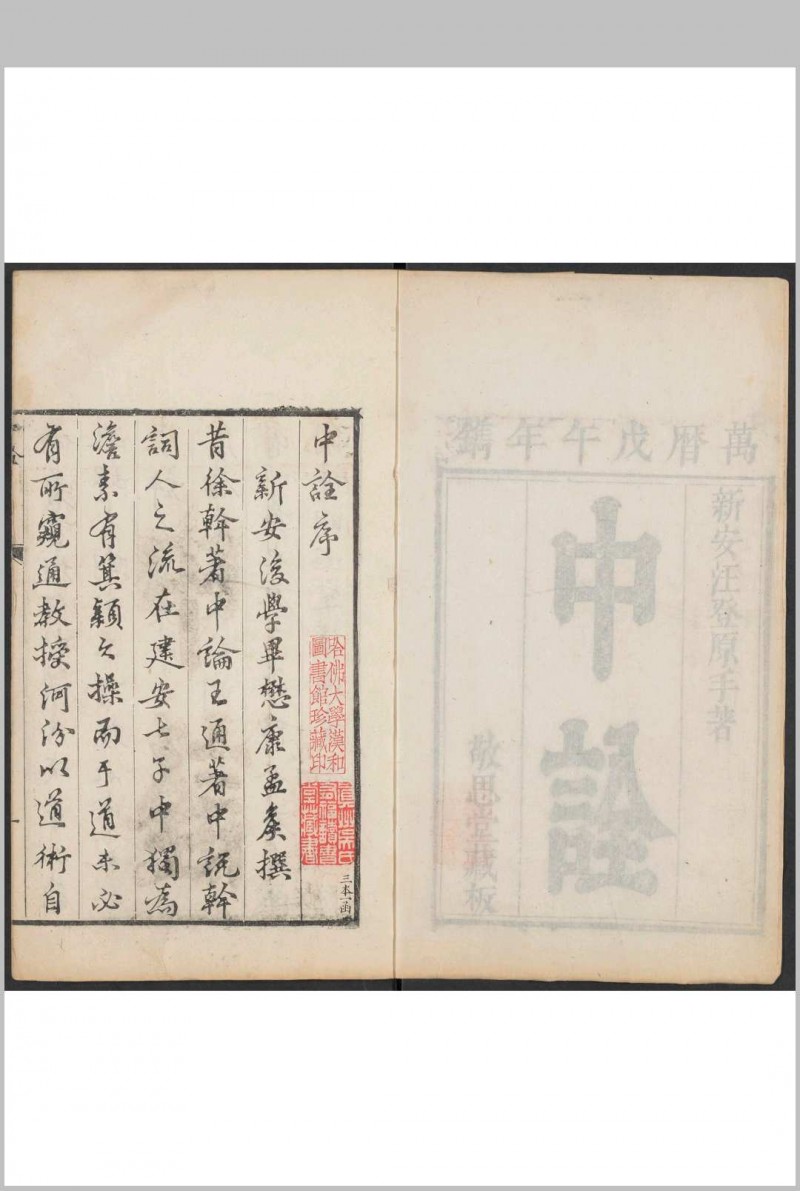 萬曆戊午年鐫
新安汪登原手著
中詮
敬思堂藏板
中詮序
哈佛大學漢和
圖書館珍藏印
三本一函
新安後學畢懋康孟矦撰
昔徐幹著中論王通著中説幹
詞人之流在建安七子中獨為
澹素有箕潁之操而于道未必
有所窺通教授河汾以道術自